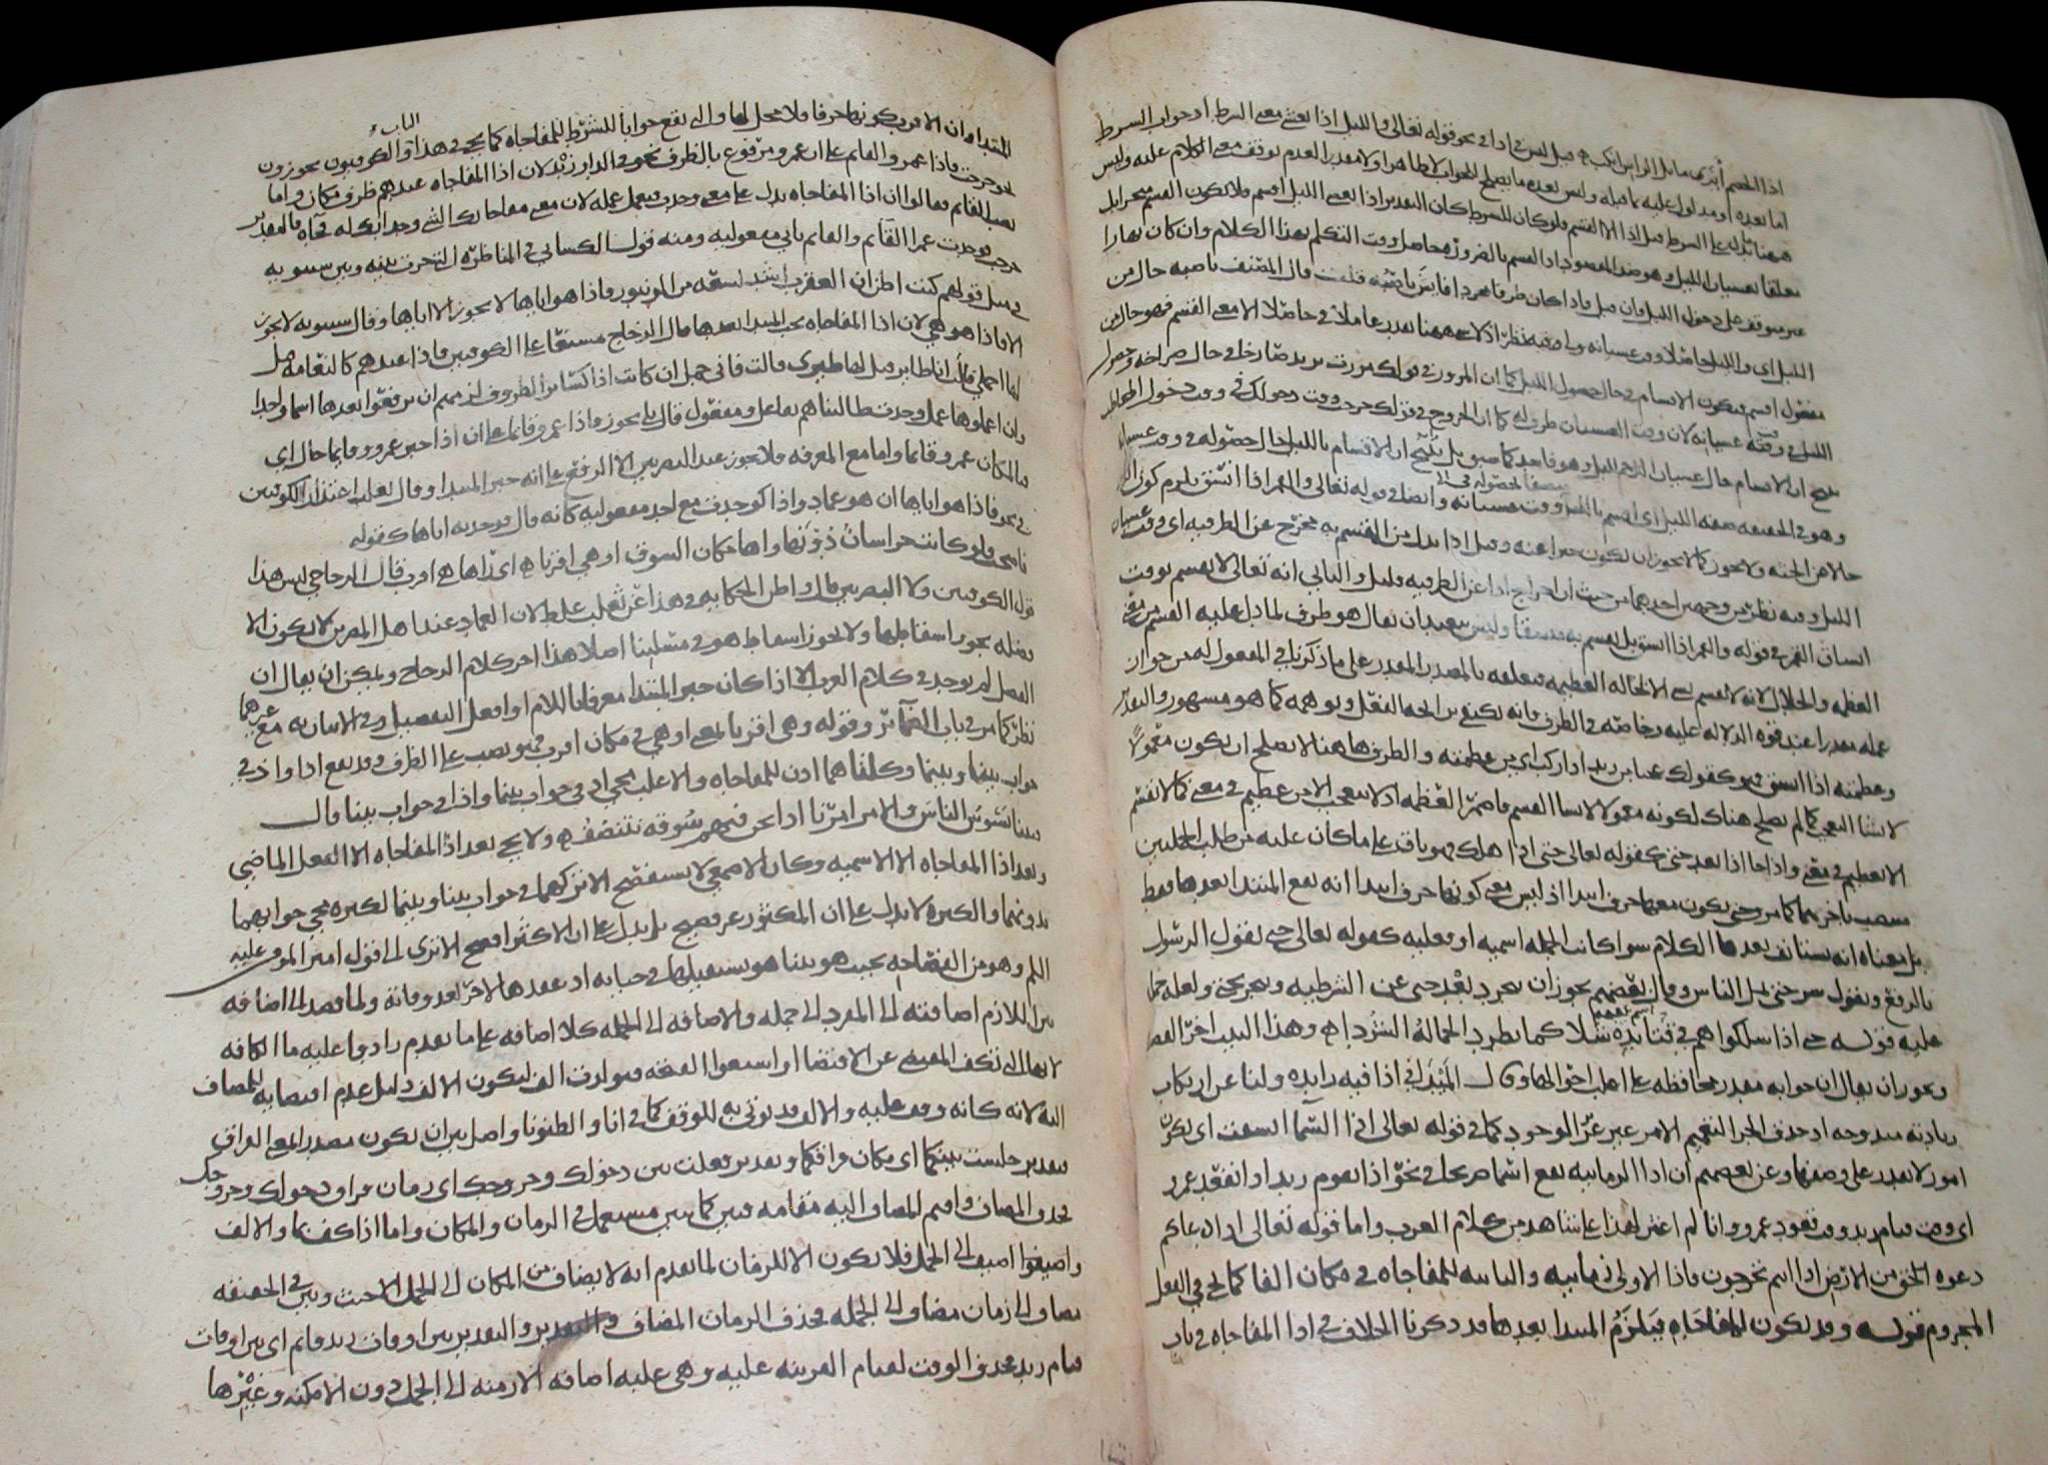 اذا الخصم ابزى مايل الراس انكب قيل ليس في اذا في نحو قوله تعالى والليل اذا يغشى معنى الشرط اذ جواب الشرط
اما بعده او مدلول عليه بما قبله وليس بعده ما يصلح للجواب لا ظاهرا ولا مقدرا لعدم توقف معنى الكلام عليه وليس
ههنا ما يدل على الشرط قبل اذا الا القسم فلو كان للشرط كان التقدير اذا يغشى الليل اقسم فلا يكون القسم منجزا بل
معلقا بغشيان الليل وهو ضد المقصود اذ القسم بالضرورة حاصل وقت التكلم بهذا الكلام وان كان نهارا
غير متوقف على دخول الليل فان قيل فاذا كان ظرفا مجردا فايش ناصبه قلت قال المصنف ناصبه حال من
الليل اى والليل حاصلا وقت غشيانه وفيه نظر اذ لا شى ههنا يقدر عاملا في حاصلا الا معنى القسم فهو حال من
مفعول اقسم فيكون الاقسام في حال حصول الليل كما ان المرور في قولك مررت بزيد صارخا في حال صراخه وحصول
الليل في وقت غشيانه لان وقت الغشيان ظرف له كما ان الخروج في قولك خرجت وقت دخولك في وقت دخول المخاطب
وهو في الحقيقة صفة الليل اى اقسم بالليل وقت غشيانه وايضا في قوله تعالى والقمر اذا اتسق يلزم كون الزمان
حالا من الجثة ولا يجوز كما لا يجوز ان يكون خبرا عنه وقيل اذا بدل من المقسم به مخرج عن الظرفيه اى وقت غشيان
الليل وفيه نظر من وجهين احدهما من حيث ان اخراج اذا عن الظرفيه قليل والثاني انه تعالى لا يقسم بوقت
اتساق القمر في قوله والقمر اذا اتسق بل يقسم به متسقا وليس ببعيد ان يقال هو ظرف لما دل عليه القسم من معنى
العظمة والجلال لانه لا يقسم بشى الا لحاله العظيمه فتعلقه بالمصدر المقدر على ما ذكرنا في المفعول له من جواز
عمله مقدرا عند قوة الدلاله عليه وخاصة في الظرف فانه يكتفى برايحة الفعل وتوهمه كما هو مشهور والتقدير
وعظمته اذا اتسق فهو كقولك عجبا من زيد اذا ركب اى من عظمته والظرف ههنا لا يصلح ان يكون معمولا
لانشا التعجب كما لم يصلح هناك لكونه معمولا لانشا القسم فاضمر العظمه اذ لا يتعجب الا من عظيم في معنى كما لا يقسم
الا بعظيم في معنى واذا جا اذا بعد حتى كقوله تعالى حتى اذا هلك فهو باق على ما كان عليه من طلب الجملتين
منتصب باخريهما كما مر وحتى يكون معها حرف ابتدا اذ ليس معنى كونها حرف ابتدا انه يقع المبتدا بعدها فقط
بل معناه انه يستانف بعدها الكلام سوا كانت الجمله اسميه او فعليه كقوله تعالى حتى يقول الرسول
بالرفع وتقول سر حتى تمل الناس وقال بعضهم يجوز ان يجرد بعد حتى عن الشرطيه وينجر بحتى ولعله حمله
عليه قوله حتى اذا سلكوا هم في قتائدة شلا كما تطرد الجمالة الشردا هو وهذا البيت اخر القصيده
ويجوز ان يقال ان جوابه مقدر محافظة على اغلب احوالها وقال الميداني اذا فيه زايده ولنا عن ارتكاب
زيادته مندوحه اذ حذف الجزا لتفخيم الامر غير عزيز الوجود كما في قوله تعالى اذا السما انشقت اى يكون
امور لا يقدر على وصفها وعن بعضهم ان اذا الزمانيه يقع اسما صريحا في نحو اذا يقوم زيد اذا يقعد عمرو
اى وقت قيام زيد وقت قعود عمرو وانا لم اعثر لهذا على شاهد من كلام العرب واما قوله تعالى اذا دعاكم
دعوة الخ من الارض اذا انتم تخرجون فاذا الاولى زمانيه والثانيه للمفاجاه في مكان الفا كما يجي في الفعل
المجزوم قوله وقد يكون للمفاجاه فيلزم المبتدا بعدها قد ذكرنا الخلاف في اذا المفاجاه في باب
المبتدا وان الاقرب كونها حرفا فلا محل لها والتي تقع جوابا للشرط للمفاجاه كما يجي في هذا الباب والكوفيون يجوزون
نحو خرجت فاذا عمرو القايم على ان عمرو مرفوع بالظرف نحو في الدار زيد لان اذا المفاجاه عندهم ظرف مكان واما
نصب القايم فقالوا ان اذا المفاجاه تدل على معنى وجدت فيعمل عمله لان معنى مفاجاتك الشى وجدانك له فجاه فالتقدير
خرجت فوجدت عمرا القايم والقايم ثاني مفعوليه ومنه قول الكسائي في المناظره التي جرت بينه وبين سيبويه
في مثل قولهم كنت اظن ان العقرب اشد لسعة من الزنبور فاذا هو اياها لا يجوز الا اياها وقال سيبويه لا يجوز
الا فاذا هو هي لان اذا المفاجاه يجب المبتدا بعدها قال الزجاج مستشنعا على الكوفيين فاذا عندهم كالنعامه قيل
لها احملي قالت انا طاير قيل لها طيري قالت فاني جمل ان كانت اذا كساير الظروف لزمهم ان يرفعوا بعدها اسما واحدا
وان اعملوها عمل وجدت طالبناهم بفاعل ومفعول قال بل يجوز فاذا عمرو قايما على ان اذا خبر عمرو وقايما حال اى
فبالمكان عمرو قايما واما مع المعرفه فلا يجوز عند البصريين الا الرفع على انه خبر المبتدا وقال ثعلب اعتذارا للكوفيين
في نحو فاذا هو اياها ان هو عماد واذا كوجدت مع احد مفعوليه كانه قال فوجدته اياها كقوله
فاضحت ولو كانت خراسان دونها راها مكان السوق او هي اقربا هو اى راها هي اقرب قال الزجاجي ليس هذا
قول الكوفيين ولا البصريين قال واظن الحكايه في هذا عن ثعلب غلط لان العماد عند اهل المصرين لا يكون الا
فضله يجوز اسقاطها ولا يجوز اسقاط هو في مسئلتنا اصلا هذا اخر كلام الزجاج ويمكن ان يقال ان
الفصل لم يوجد في كلام العرب الا اذا كان خبر المبتدا معرفا باللام او افعل التفصيل وفي الاتيان به مع غيرهما
نظر كما مر في باب الضمائر وقوله وهي اقربا بالمعنى او هي في مكان اقرب فهو نصب على الظرف وقد يقع اذا واذ في
جواب بينا وبينما وكلتاهما اذن للمفاجاه والاغلب مجي اذ في جواب بينما واذا في جواب بينا قال
بينا نسوس الناس والامر امرنا اذا نحن فيهم سوقة نتنصف هو ولا يجي بعد اذ المفاجاه الا الفعل الماضي
وبعد اذا المفاجاه الا الاسميه وكان الاصمعي لا يستفصح الا تركهما في جواب بينا وبينما لكثرة مجي جوابهما
بدونهما والكثره لا تدل على ان المكثور غير فصيح بل يدل على ان الاكثر افصح الا ترى الى قول امير المومنين عليه
السلم وهو من الفصاحه بحيث هو بينا هو يستقيلها في حياته اذ عقدها لاخر بعد وفاته ولما قصد الى اضافه
بين اللازم اضافته الى المفرد الى جمله والاضافه الى الجمله كلا اضافه على ما تقدم زادوا عليه ما الكافه
لانها التي تكف المقتضي عن الاقتضا او اشبعوا الفتحه فتولدت الف ليكون الالف دليل عدم اقتضايه للمضاف
اليه لانه كانه وقف عليه والالف قد يوتى به للوقف كما في انا والظنونا واصل بين ان يكون مصدرا بمعنى الفراق
فتقدير جلست بينكما اى مكان فراقكما وتقدير فعلت بين دخولك وخروجك اى زمان فراق دخولك وخروجك
فحذف المضاف واقيم المضاف اليه مقامه فبين كما تبين مستعمل في الزمان والمكان واما اذا كف بما والالف
واضيفوا اضيف الى الجمل فلا يكون الا للزمان لما تقدم انه لا يضاف من المكان الى الجمل الا حيث وبين في الحقيقه
مضاف الى زمان مضاف الى الجمله فحذف الزمان المضاف والتقدير بين اوقات زيد قايم اى بين اوقات
قيام زيد فحذف الوقت لقيام القرينه عليه وهي غلبه اضافه الازمنه الى الجمل دون الامكنه وغيرها